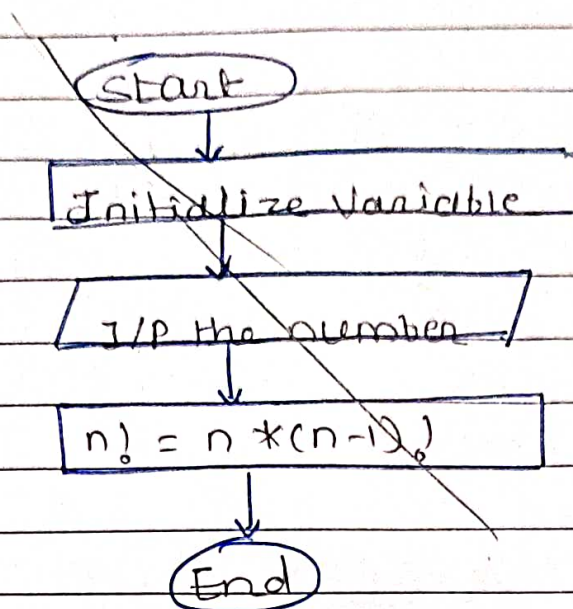 Start
Initialize Variable
I/P the number
n! = n *(n-1)!
End